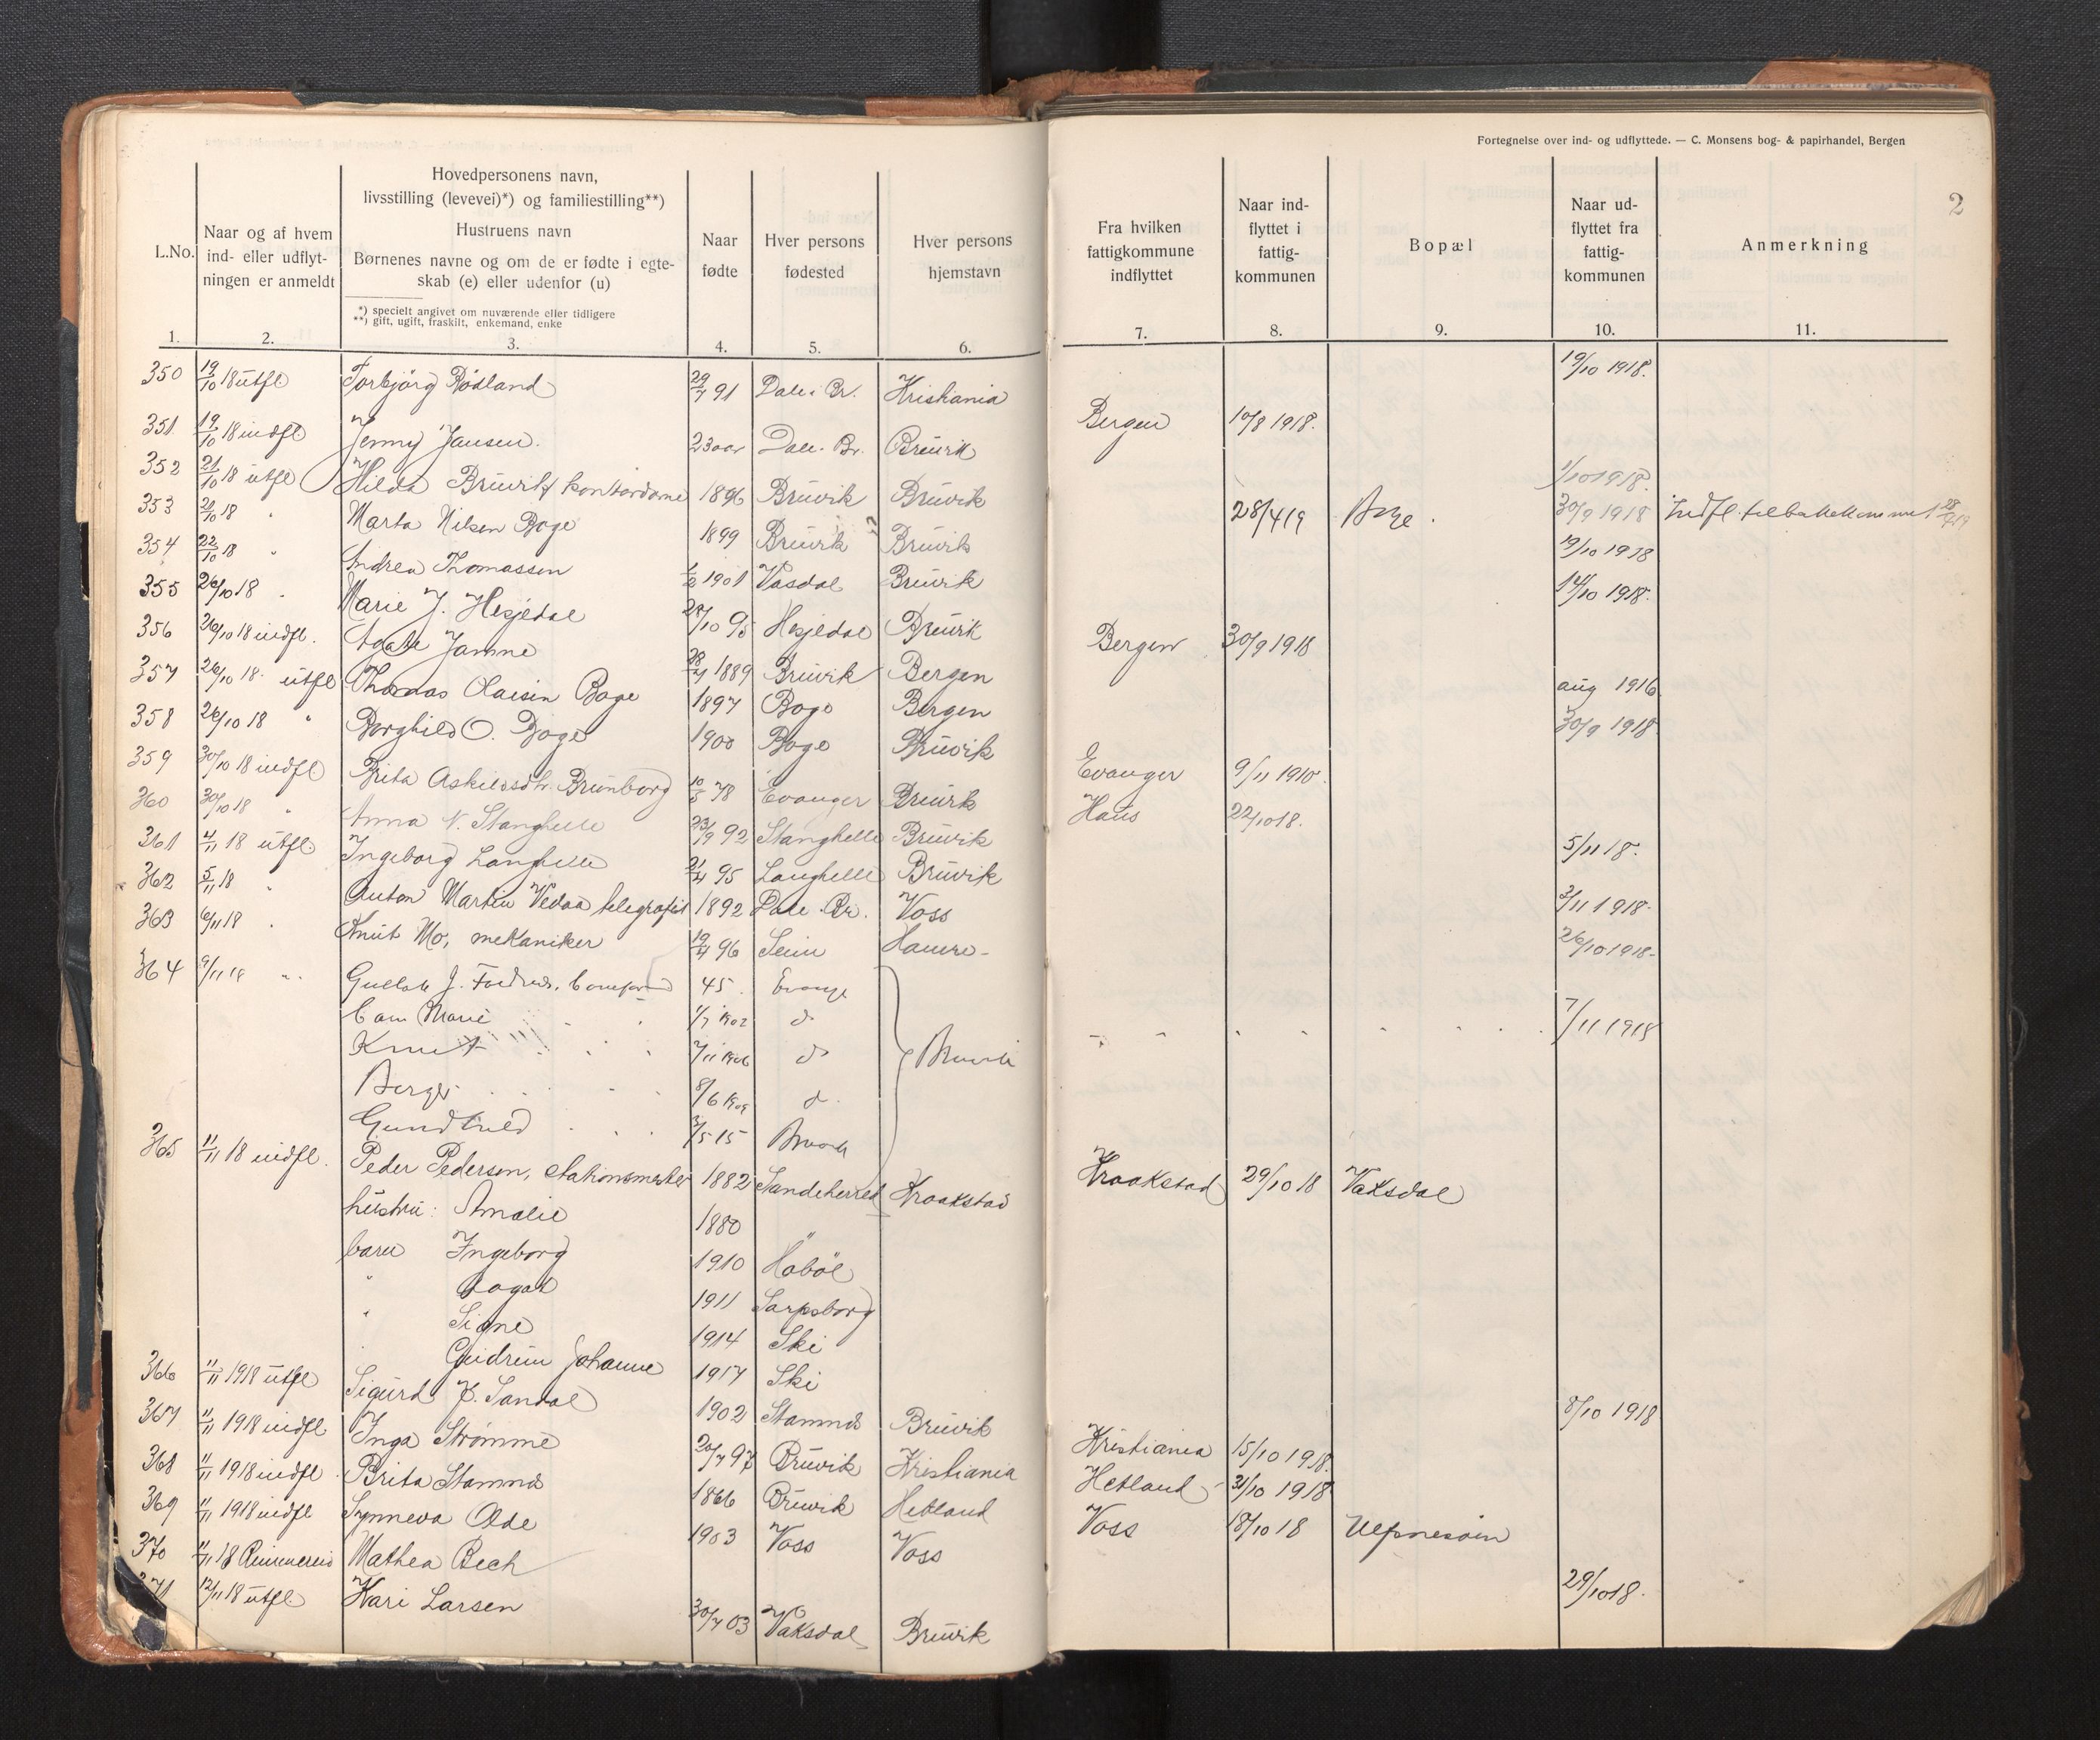 Fortegnelse over ind- og udflyttede. — C. Monsens bog- & papirhandel, Bergen
2
L.No.
Naar og af hvem ind- eller udflyt- ningen er anmeldt
Hovedpersonens navn,
livsstilling (levevei)*) og familiestilling**)
Hustruens navn
Børnenes navne og om de er fødte i egte-
skab (e) eller udenfor (u)
*) specielt angivet om nuværende eller tidligere
**) gift, ugift, fraskilt, enkemand, enke
Naar fødte
Hver persons fødested
Hver persons hjemstavn
Fra hvilken fattigkommune indflyttet
Naar ind- flyttet i fattig- kommunen
Bopæl
Naar ud- flyttet fra fattig- kommunen
Anmerkning
1. 2. 3. 4. 5. 6. 7. 8. 9. 10. 11.
350 19/10 18 utfl Torbjørg Rødland 29/7 91 Dale. Br. Kristiania 19/10 1918.
351 19/10 18 indfl Jenny Jansen. 23 aar Dale. Br. Bruvik Bergen 10/8 1918.
352 21/10 18 utfl Hilda Bruvik, kontordame 1896 Bruvik Bruvik 1/10 1918.
353 21/10 18 " Marta Nilsen Boge 1899 Bruvik Bruvik 28/4 19 Boge. 30/9 1918 Indfl. tilbakekommet 28/4 19
354 22/10 18 " Andrea Thomassen 1901 Vasdal Bruvik 19/10 1918
355 26/10 18 " Marie J. Hesjedal 28/10 95 Hesjedal Bruvik 14/10 1918.
356 26/10 18 indfl. Agate Jamne 28/4 1889 Bruvik Bergen Bergen 30/9 1918
357 26/10 18. utfl Thomas Olaisen Boge 1897 Boge Bergen aug 1916
358 26/10 18 " Borghild O. Boge 1900 Boge Bruvik 30/9 1918.
359 30/10 18 indfl Brita Askildsdtr. Brunborg 10/5 78 Evanger Bruvik Evanger 9/11 1910.
360 30/10 18 " Anna N. Stanghelle 23/9 92 Stanghelle Bruvik Haus 22/10 18.
361 4/11 18 utfl. Ingeborg Langhelle 21/4 95 Langhelle Bruvik 5/11 18.
362 5/11 18 " Anton Martin Vedaa telegrafist 1892 Dale. Br. Voss 3/11 1918.
363 6/11 18 " Knut Mo, mekaniker 19/4 96 Seim Hamre- 26/10 1918.
364 9/11 18 " Gullak J. 45 Evang
Marie 1/7 1902 d
Knut 7/11 1906 d Bruvik 7/11 1918
Berge 8/6 1909 d
Gundhild 3/5 15 Bruvik
365 11/11 18 indfl. Peder Pedersen, stationsmester 1882 Sandeherred Kraakstad Kraakstad 29/10 18 Vaksdal
hustru: Amalie 1880 "
barn Ingeborg 1910 Høbøl
" Aagot 1911 Sarpsborg
" Signe 1914 Ski
" Gudrun Johanne 1917 Ski
366 11/11 1918 utfl Sigurd J. Sandal 1902 Stamnes Bruvik 8/10 1918
367 11/11 1918 indfl Inga Strømme 20/7 97 Bruvik Kristiania Kristiania 15/10 1918.
368 11/11 1918 indfl. Brita Stamnes 1866 Bruvik Hetland Hetland 31/10 1918
369 11/11 1918 indfl Synneva Øde 1903 Voss Voss Voss 18/10 18
370 11/11 18 Mathea Bech
371 12/11 18 utfl. Kari Larsen 30/7 03 Vaksdal Bruvik 29/10 18.